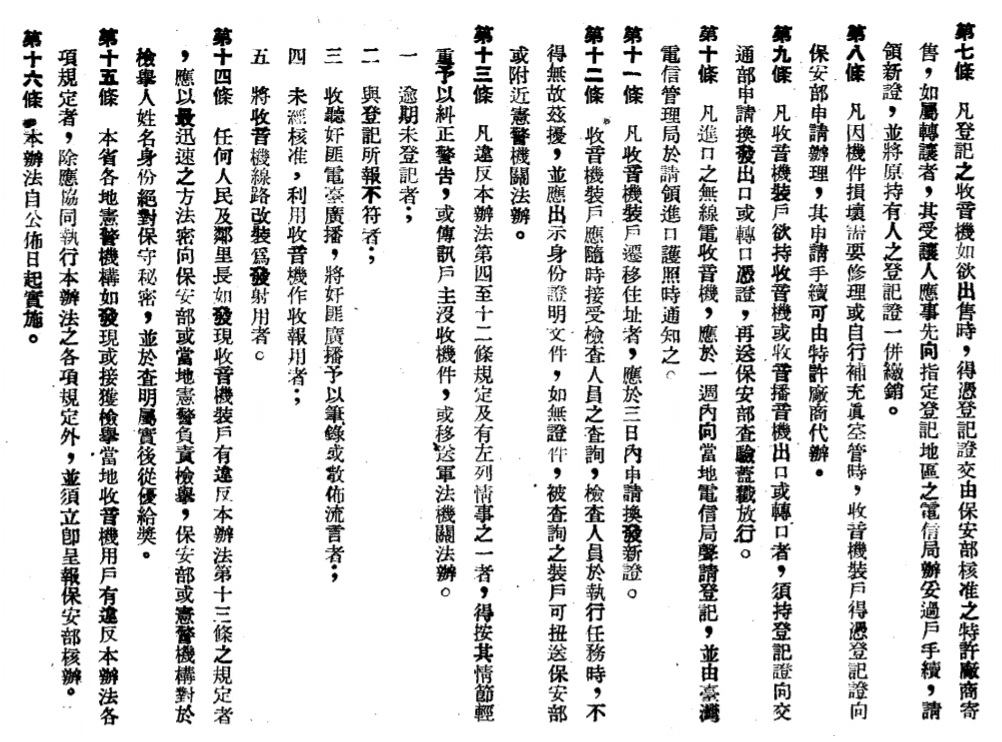 第七條　凡登記之收音機如欲出售時，得憑登記證交由保安部核准之特許廠商寄
售，如屬轉讓者，其受讓人應事先向指定登記地區之電信局辦妥過戶手續，請
領新證，並將原持有人之登記證一併繳銷。
第八條　凡因機件損壞需要修理或自行補充眞空管時，收音機裝戶得憑登記證向
保安部申請辦理，其申請手續可由特許廠商代辦。
第九條　凡收音機裝戶欲持收音機或收音播音機出口或轉口者，須持登記證向交
通部申請換發出口或轉口憑證，再送保安部查驗蓋戳放行。
第十條　凡進口之無線電收音機，應於一週內向當地電信局聲請登記，並由臺灣
電信管理局於請領進口護照時通知之。
第十一條　凡收音機裝戶遷移住址者，應於三日內申請換發新證。
第十二條　收音機裝戶應隨時接受檢查人員之查詢，檢查人員於執行任務時，不
得無故茲擾，並應出示身份證明文件，如無證件，被查詢之裝戶可扭送保安部
或附近憲警機關法辦。
第十三條　凡違反本辦法第四至十二條規定及有左列情事之一者，得按其情節輕
重予以糾正警告，或傳訊戶主沒收機件，或移送軍法機關法辦。
一　逾期未登記者；
二　與登記所報不符者；
三　收聽奸匪電臺廣播，將奸匪廣播予以筆錄或散佈流言者；
四　未經核准，利用收音機作收報用者；
五　將收音機線路改裝爲發射用者。
第十四條　任何人民及鄰里長如發現收音機裝戶有違反本辦法第十三條之規定者
，應以最迅速之方法密向保安部或當地憲警負責檢舉，保安部或憲警機構對於
檢舉人姓名身份絕對保守秘密，並於查明屬實後從優給獎。
第十五條　本省各地憲警機構如發現或接獲檢舉當地收音機用戶有違反本辦法各
項規定者，除應協同執行本辦法之各項規定外，並須立卽呈報保安部核辦。
第十六條　本辦法自公佈日起實施。